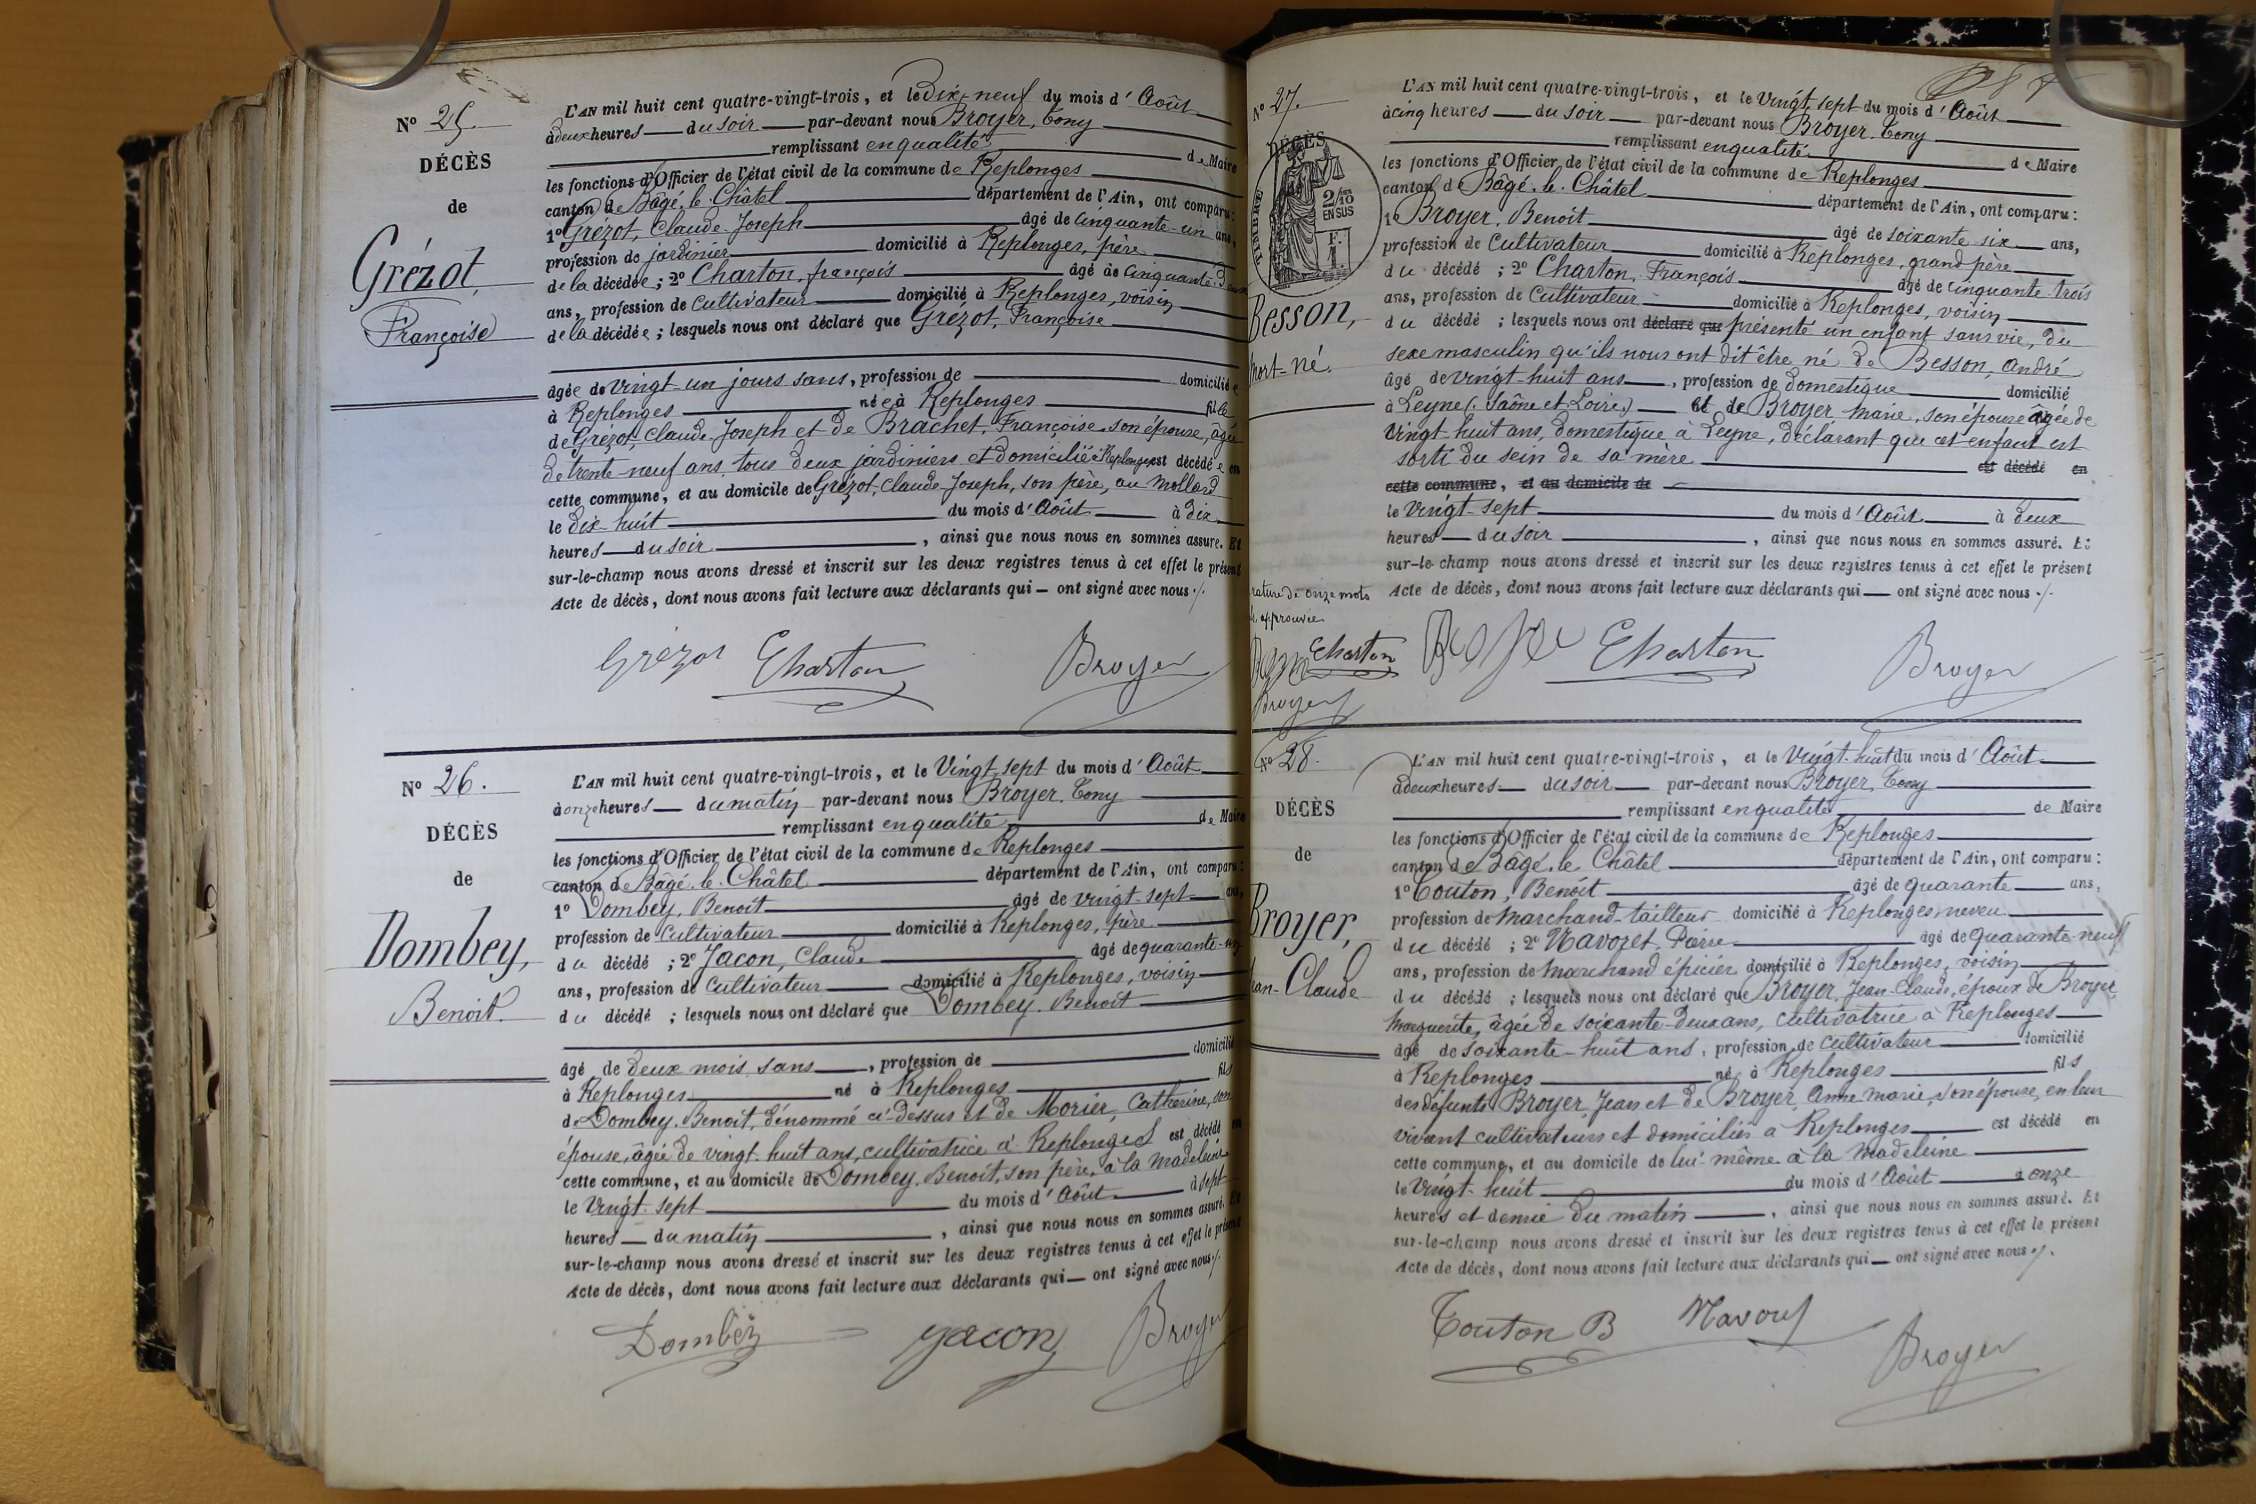 Nº 25.
DÉCÈS
de
Grézot,
Françoise
L'AN mil huit cent quatre-vingt-trois, et le Dix-neuf du mois d'Août
à deux heures du soir par-devant nous Broyer, Tony
remplissant en qualité de Maire
les fonctions d'Officier de l'état civil de la commune de Replonges
canton de Bâgé-le-Châtel département de l'Ain, ont comparu:
1º Grézot, Claude-Joseph âgé de Cinquante-un ans,
profession de jardinier domicilié à Replonges, père
de la décédée; 2º Charton, françois âgé de Cinquante-
ans, profession de Cultivateur domicilié à Replonges, voisin
de la décédée; lesquels nous ont déclaré que Grézot, Françoise
âgée de vingt-un jours sans, profession de domiciliée
à Replonges née à Replonges fille
de Grézot, Claude-Joseph et de Brachet, Françoise son épouse, âgée
de trente-neuf ans, tous deux jardiniers et domicilié à Replonges est décédée en
cette commune, et au domicile de Grézot, Claude-Joseph, son père, au Mollard
le dix-huit du mois d'Août à dix
heures du soir, ainsi que nous nous en sommes assuré. Et
sur-le-champ nous avons dressé et inscrit sur les deux registres tenus à cet effet le présent
Acte de décès, dont nous avons fait lecture aux déclarants qui — ont signé avec nous ./.
Grézot Charton Broyer
Nº 26.
DÉCÈS
de
Dombey,
Benoit.
L'AN mil huit cent quatre-vingt-trois, et le Vingt-sept du mois d'Août
à onze heures du matin par-devant nous Broyer, Tony
remplissant en qualité de Maire
les fonctions d'Officier de l'état civil de la commune de Replonges
canton de Bâgé-le-Châtel département de l'Ain, ont comparu:
1º Dombey, Benoit âgé de vingt-sept ans,
profession de Cultivateur domicilié à Replonges, père
du décédé; 2º Jacon, Claude âgé de quarante-un
ans, profession de Cultivateur domicilié à Replonges, voisin
du décédé; lesquels nous ont déclaré que Dombey, Benoit
âgé de deux mois sans, profession de domicilié
à Replonges né à Replonges fils
de Dombey, Benoit, dénommé ci-dessus et de Morier, Catherine, son
épouse, âgée de vingt-huit ans, cultivatrice à Replonges est décédé en
cette commune, et au domicile de Dombey, Benoit, son père, à la Madeleine
le Vingt-sept du mois d'Août à sept
heures du matin, ainsi que nous nous en sommes assuré. Et
sur-le-champ nous avons dressé et inscrit sur les deux registres tenus à cet effet le présent
Acte de décès, dont nous avons fait lecture aux déclarants qui — ont signé avec nous ./.
Dombey Jacon Broyer
Nº 27.
DÉCÈS
TIMBRE
2/10
EN SUS
Besson,
mort-né.
L'AN mil huit cent quatre-vingt-trois, et le Vingt-sept du mois d'Août
à cinq heures du soir par-devant nous Broyer, Tony
remplissant en qualité de Maire
les fonctions d'Officier de l'état civil de la commune de Replonges
canton de Bâgé-le-Châtel département de l'Ain, ont comparu:
1º Broyer, Benoit âgé de soixante-six ans,
profession de Cultivateur domicilié à Replonges, grand père
du décédé; 2º Charton, François âgé de Cinquante-trois
ans, profession de Cultivateur domicilié à Replonges, voisin
du décédé; lesquels nous ont déclaré que présenté un enfant sans vie, du
sexe masculin qu'ils nous ont dit être né de Besson, André
âgé de vingt-huit ans, profession de domestique domicilié
à Leyne (Saône et Loire) et de Broyer Marie, son épouse âgée de
vingt-huit ans, domestique à Leyne, déclarant que cet enfant est
sorti du sein de sa mère est décédé en
cette commune, et au domicile de
le Vingt-sept du mois d'Août à deux
heures du soir, ainsi que nous nous en sommes assuré. Et
sur-le-champ nous avons dressé et inscrit sur les deux registres tenus à cet effet le présent
Acte de décès, dont nous avons fait lecture aux déclarants qui — ont signé avec nous ./.
rature de onze mots
approuvée
Charton
Broyer
Charton Broyer
Nº 28.
DÉCÈS
de
Broyer,
Jean-Claude
L'AN mil huit cent quatre-vingt-trois, et le Vingt-huit du mois d'Août
à deux heures du soir par-devant nous Broyer, Tony
remplissant en qualité de Maire
les fonctions d'Officier de l'état civil de la commune de Replonges
canton de Bâgé-le-Châtel département de l'Ain, ont comparu:
1º Touton, Benoit âgé de quarante ans,
profession de Marchand-tailleur domicilié à Replonges neveu
du décédé; 2º Navoret, Pierre âgé de quarante-neuf
ans, profession de marchand épicier domicilié à Replonges, voisin
du décédé; lesquels nous ont déclaré que Broyer, Jean-Claude, époux de Broyer
Marguerite, âgée de soixante-deux ans, cultivatrice à Replonges
âgé de soixante-huit ans, profession de cultivateur domicilié
à Replonges né à Replonges fils
des défunts Broyer, Jean et de Broyer, Anne Marie, son épouse, en leur
vivant cultivateurs et domiciliés à Replonges est décédé en
cette commune, et au domicile de lui-même à la Madeleine
le Vingt-huit du mois d'Août à onze
heures et demie du matin, ainsi que nous nous en sommes assuré. Et
sur-le-champ nous avons dressé et inscrit sur les deux registres tenus à cet effet le présent
Acte de décès, dont nous avons fait lecture aux déclarants qui — ont signé avec nous ./.
Touton B Navoret
Broyer